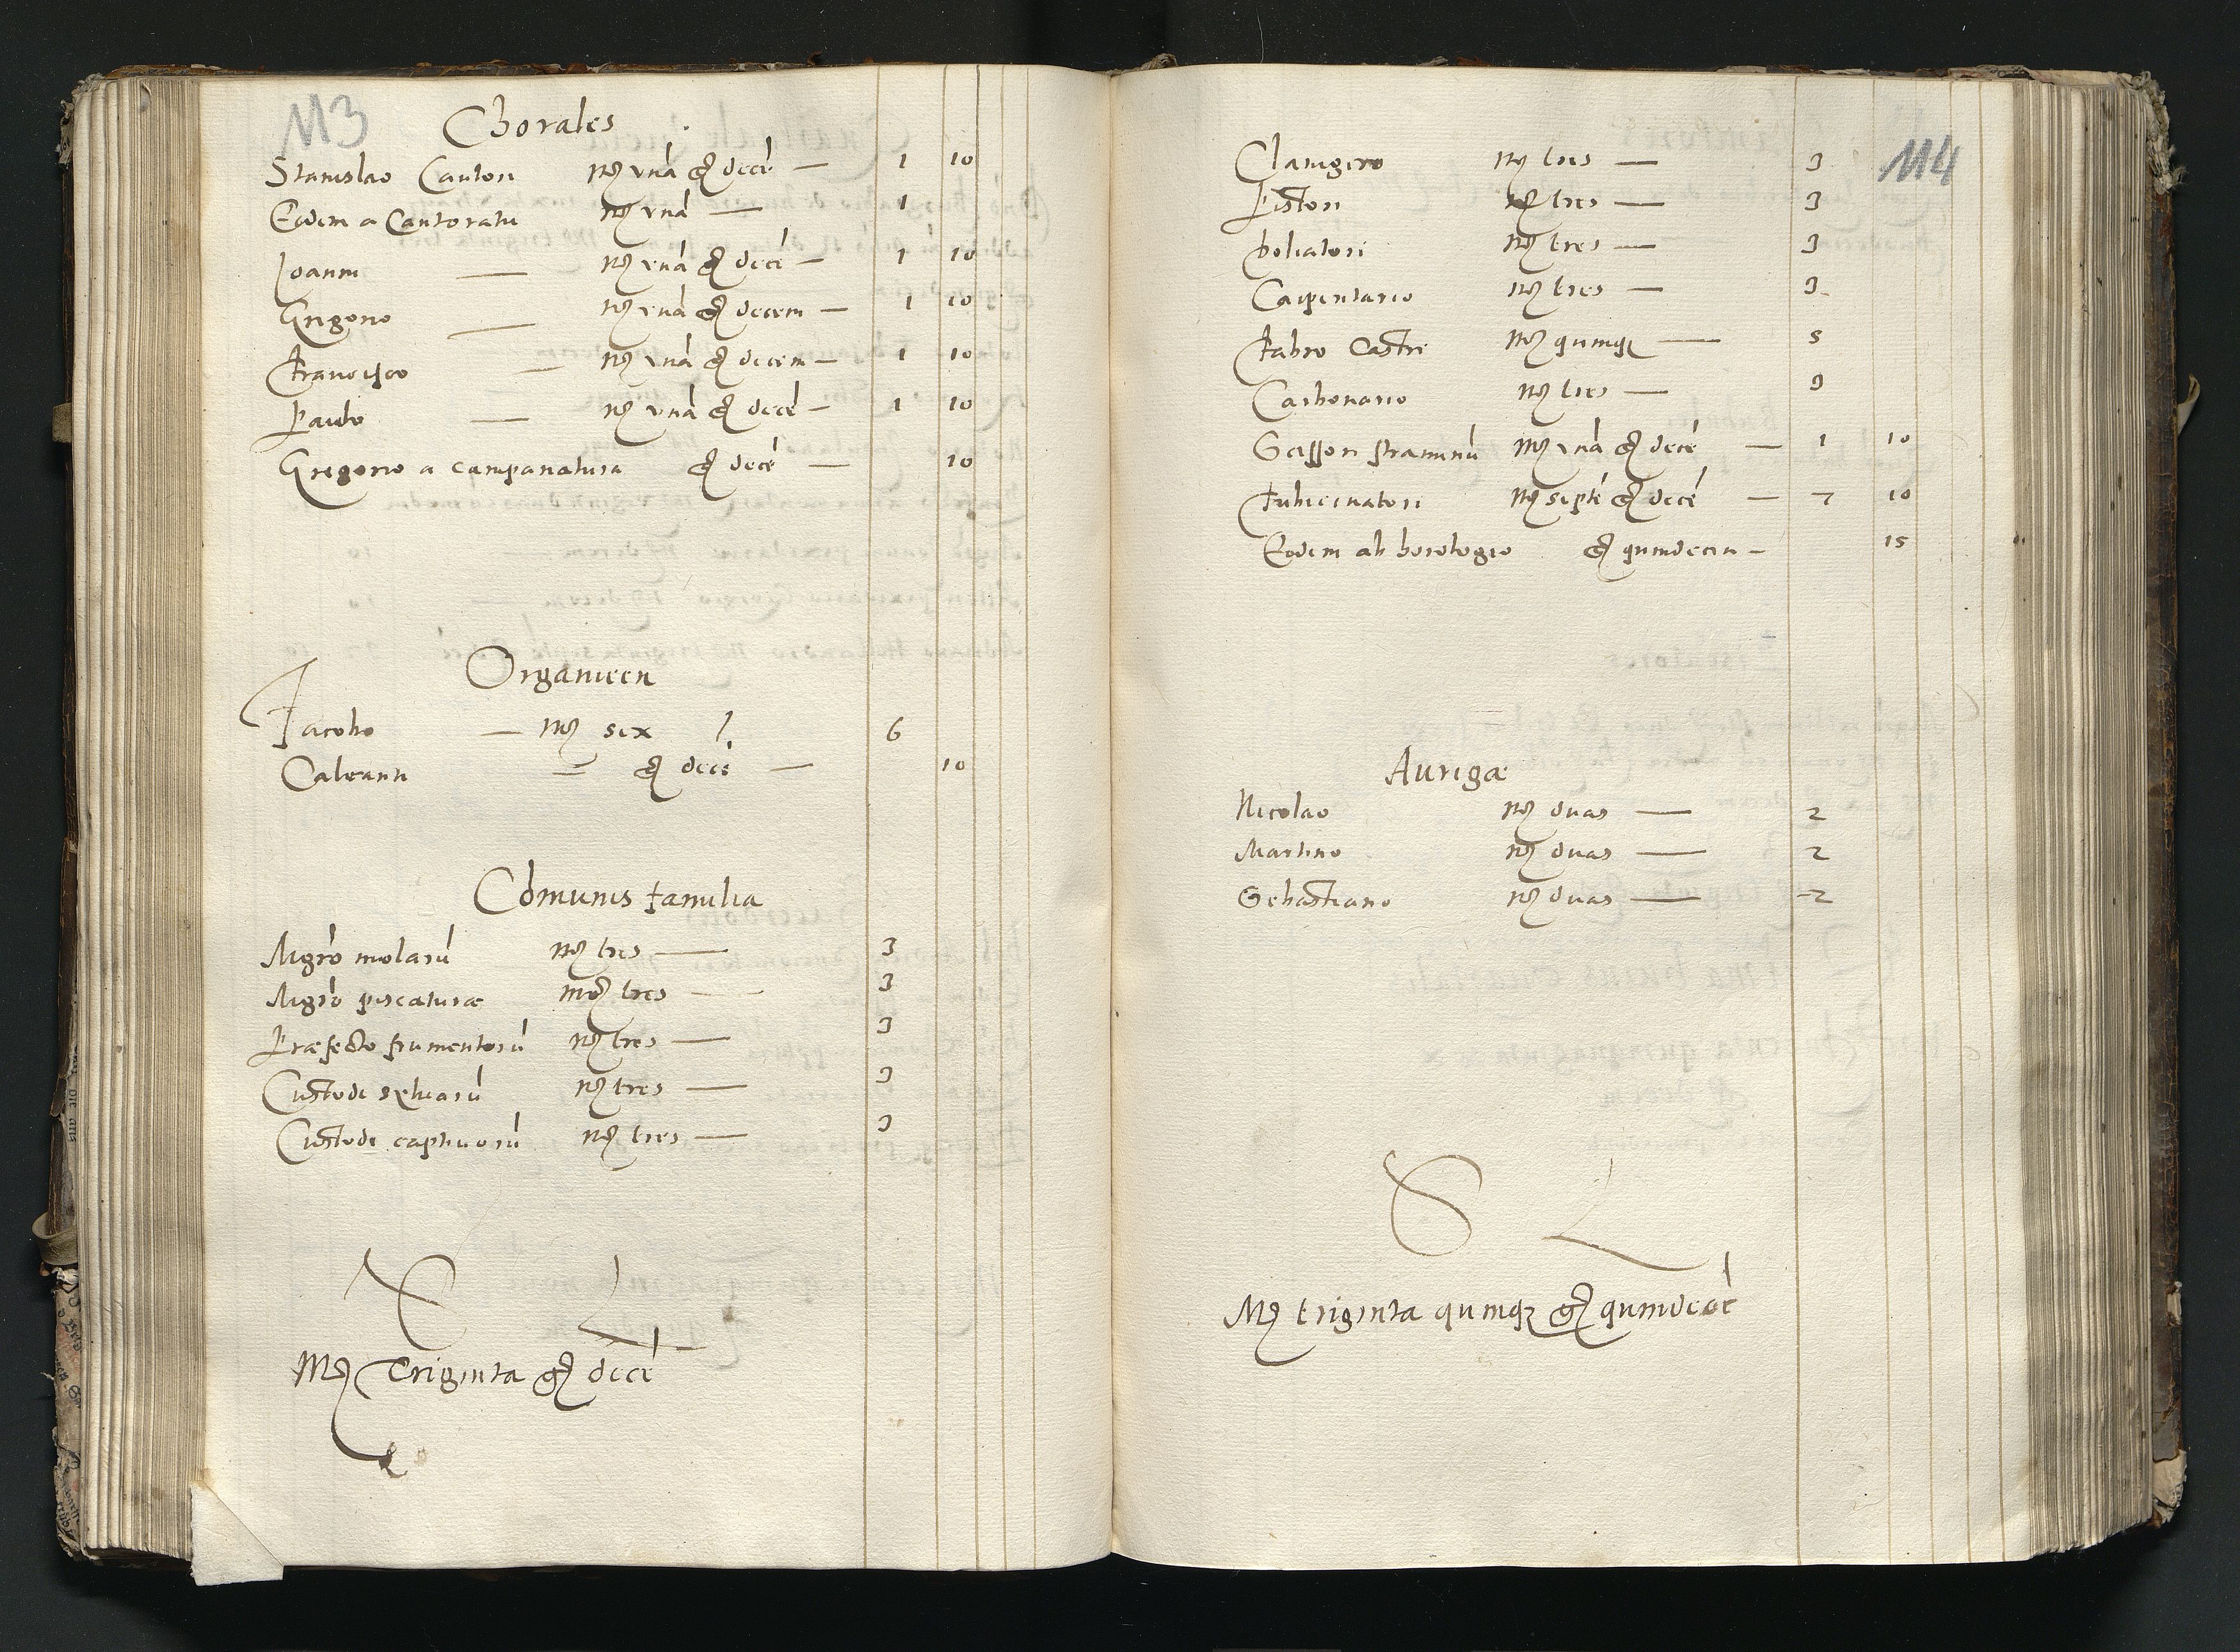 113
Chorales
Stanislao Cantori mꝝ vnā gꝝ decē — 1 10
Eidem a Cantoratu mꝝ vnā — 1
Joanni — mꝝ vnā gꝝ decē — 1 10
Gregorio — mꝝ vnā gꝝ decem — 1 10
Francisco — mꝝ vnā gꝝ decem — 1 10
Paulo — mꝝ vnā gꝝ decē — 1 10
Gregorio a campanatura gꝝ decē — 10
Organicen
Jacobo — mꝝ sex 6
Calcanti — gꝝ decē — 10
Cōmunis familia
Mgro molarū mꝝ tres — 3
Mgro piscaturæ mꝝ tres — 3
Præfecto frumentorū mꝝ tres — 3
Custodi seluarū mꝝ tres — 3
Custodi captiuorū mꝝ tres — 3
S L
Mꝝ Triginta gꝝ decē
114
Clauigero mꝝ tres — 3
Pistori mꝝ tres — 3
Doliatori mꝝ tres — 3
Carpentario mꝝ tres — 3
Fabro Castri mꝝ quinqꝫ — 5
Carbonario mꝝ tres — 3
Scissori straminū mꝝ vnā gꝝ decē — 1 10
Tubicinatori mꝝ septē gꝝ decē — 7 10
Eidem ab horologio gꝝ quindecim — 15
Aurigæ
Nicolao mꝝ duas — 2
Martino mꝝ duas — 2
Sebastiano mꝝ duas — 2
S L
Mꝝ triginta quinqꝫ gꝝ quindecē